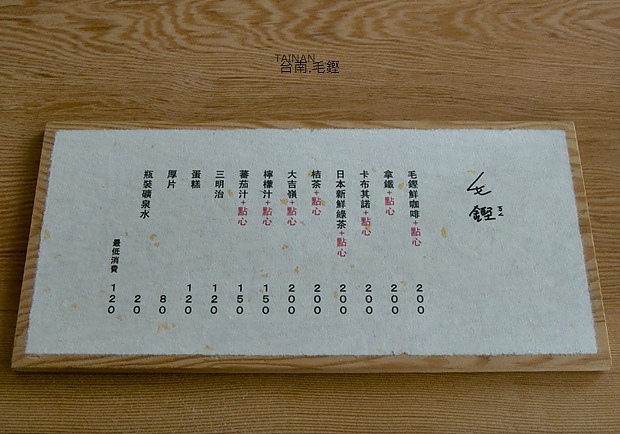 TAINAN
台南.毛鏗
毛鏗
毛鏗鮮咖啡+點心 200
拿鐵+點心 200
卡布其諾+點心 200
日本新鮮綠茶+點心 200
桔茶+點心 200
大吉嶺+點心 200
檸檬汁+點心 150
蕃茄汁+點心 150
三明治 120
蛋糕 120
厚片 80
瓶裝礦泉水 20
最低消費 120